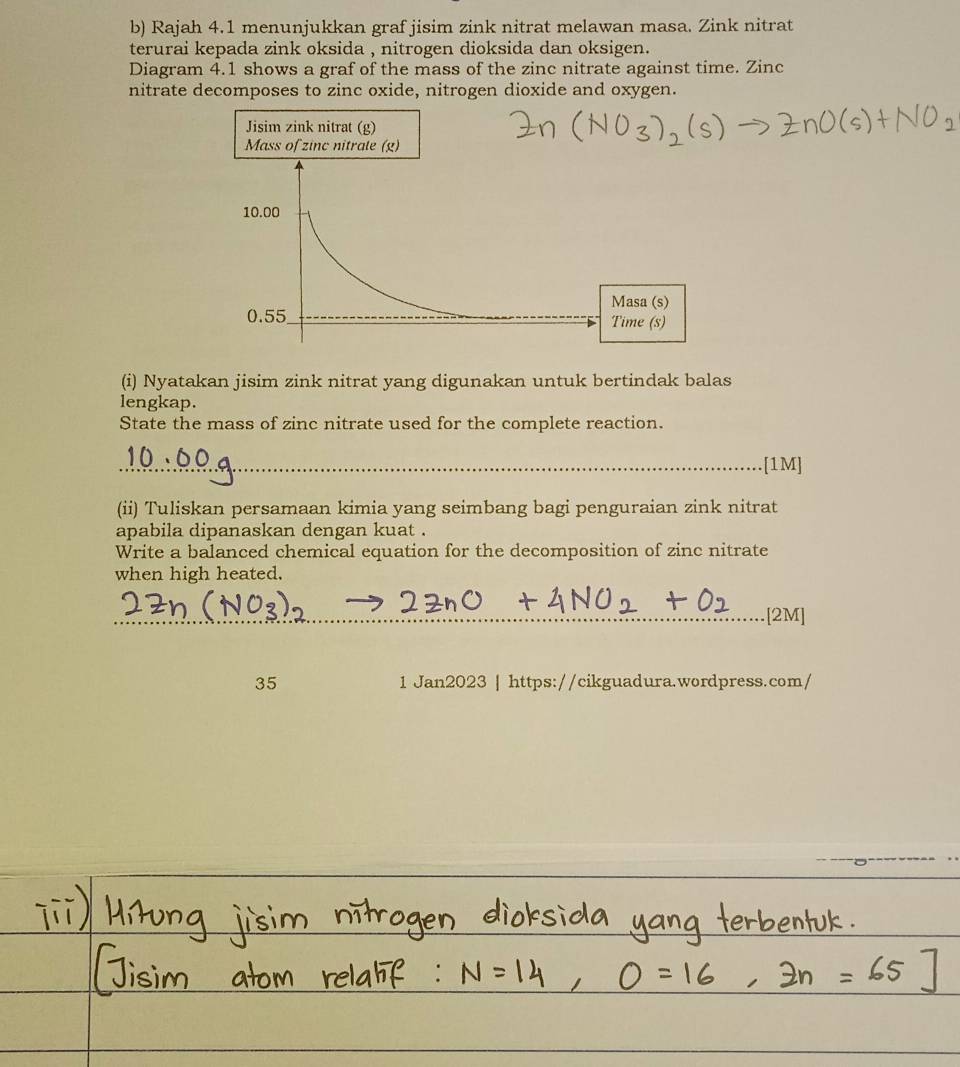 b) Rajah 4.1 menunjukkan graf jisim zink nitrat melawan masa. Zink nitrat
terurai kepada zink oksida , nitrogen dioksida dan oksigen.
Diagram 4.1 shows a graf of the mass of the zinc nitrate against time. Zinc
nitrate decomposes to zinc oxide, nitrogen dioxide and oxygen.
Jisim zink nitrat (g)
Mass of zinc nitrate (g)
Zn(NO₃)₂(s) → ZnO(s)+NO₂
10.00
0.55
Masa (s)
Time (s)
(i) Nyatakan jisim zink nitrat yang digunakan untuk bertindak balas
lengkap.
State the mass of zinc nitrate used for the complete reaction.
10.00g [1M]
(ii) Tuliskan persamaan kimia yang seimbang bagi penguraian zink nitrat
apabila dipanaskan dengan kuat .
Write a balanced chemical equation for the decomposition of zinc nitrate
when high heated.
2Zn(NO₃)₂ → 2ZnO + 4NO₂ + O₂ [2M]
35 1 Jan2023 | https://cikguadura.wordpress.com/
iii) Hitung jisim nitrogen dioksida yang terbentuk.
[Jisim atom relatif : N = 14 , O = 16 , Zn = 65]